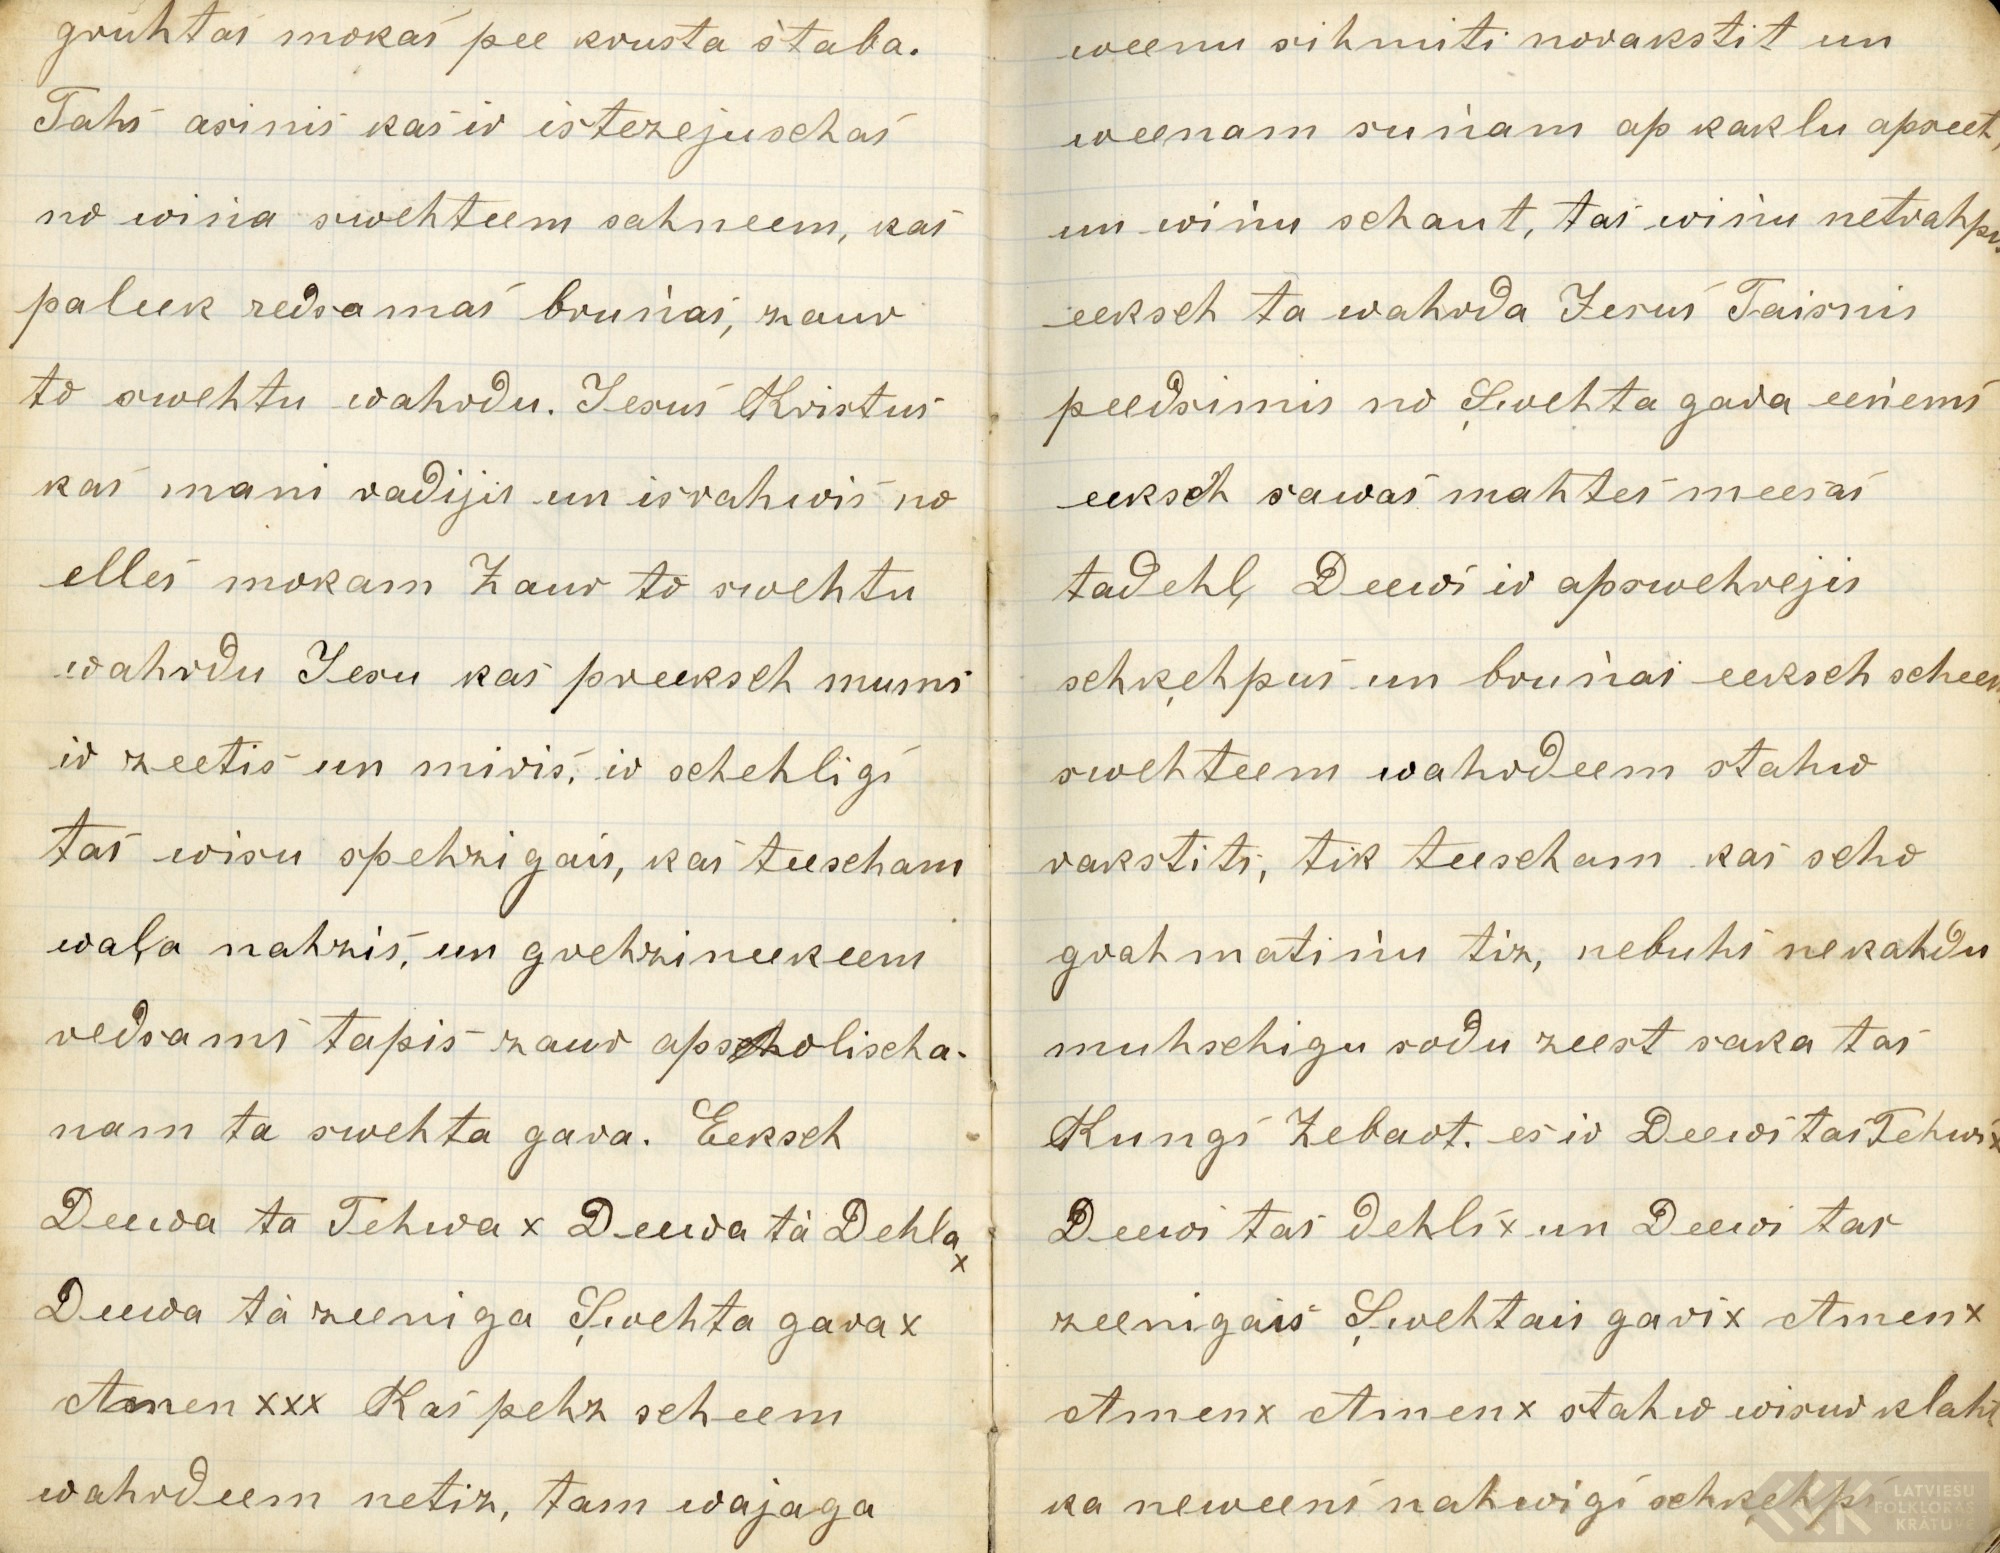 gruhtas mokas pee krusta staba.
Tahs asinis kas ir istezejuschas
no wiņa swehteem sahneem, kas
paleek redsamas bruņas, zaur
to swehtu wahrdu. Jesus Kristus
kas mani radijis un israhwis no
elles mokam Zaur to swehtu
wahrdu Jesu kas preeksch mums
ir zeetis un miris, ir schehligs
tas wisu spehzigais, kas teescham
waļa nahzis, un grehzineekeem
redsams tapis zaur apsholischa-
nam ta swehta gara. Eeksch
Deewa ta Tehwa x Deewa tà Dehla x
Deewa tà zeeniga Swehta gara x
Amen xxx Kas pehz scheem
wahrdeem netiz, tam wajaga
weenu sihmiti norakstit un
weenam suņam ap kaklu apseet,
un wiņu schaut, tas wiņu netrahpis
eeksch ta wahrda Jesus Taisnis
peedsimis no Swehta gara eeņems
eeksch sawas mahtes meesas
tadehļ Deews ir apswehrejis
schķehpus un bruņas eeksch scheem
swehteem wahrdeem stahw
rakstits, tik teescham kas scho
grahmatiņu tiz, nebuhs nekahdu
muhschigu sodu zeest saka tas
Kungs Zebaot. es ir Deews tas Tehws x
Deews tas dehls x un Deews tas
zeenigais Swehtais gars x Amen x
Amen x Amen x stahw wisur klaht
ka neweens nahwigs schķehps
LATVIEŠU
FOLKLORAS
KRĀTUVE